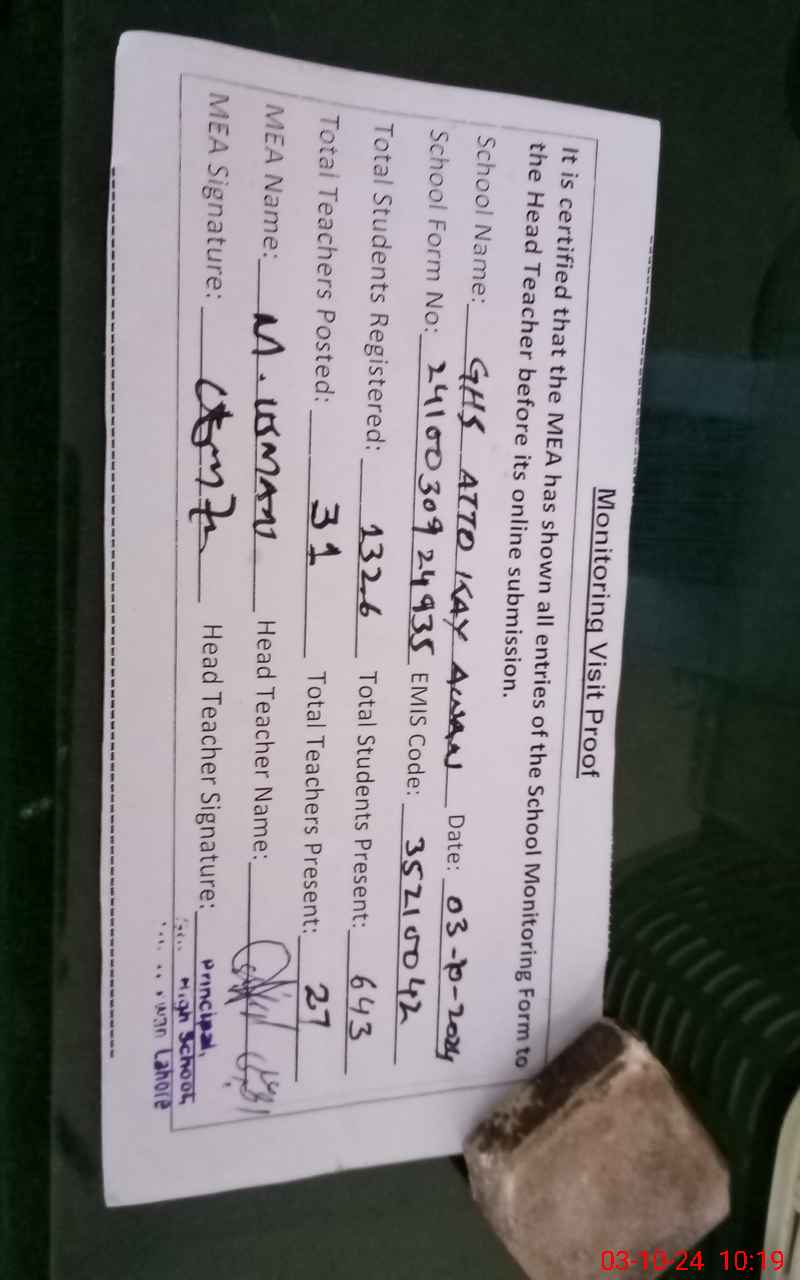 Monitoring Visit Proof
It is certified that the MEA has shown all entries of the School Monitoring Form to
the Head Teacher before its online submission.
School Name: GHS ATTO KAY AWAN Date: 03-10-2024
School Form No: 24100309 24935 EMIS Code: 35210042
Total Students Registered: 1326 Total Students Present: 643
Total Teachers Posted: 31 Total Teachers Present: 27
MEA Name: M. USMAN Head Teacher Name:
MEA Signature: Head Teacher Signature:
Principal,
High School
Lahore
03-10-24 10:19